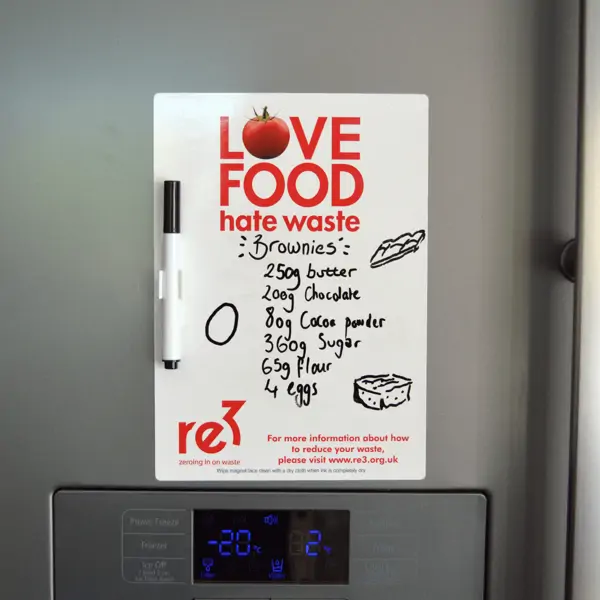 LOVE
FOOD
hate waste
Brownies
250g butter
200g Chocolate
80g Cocoa powder
360g Sugar
65g Flour
4 eggs
re3
zeroing in on waste
For more information about how
to reduce your waste,
please visit www.re3.org.uk
Wipe magnet face clean with a dry cloth when ink is completely dry
Freezer
Icy Off
-20°c
2°c